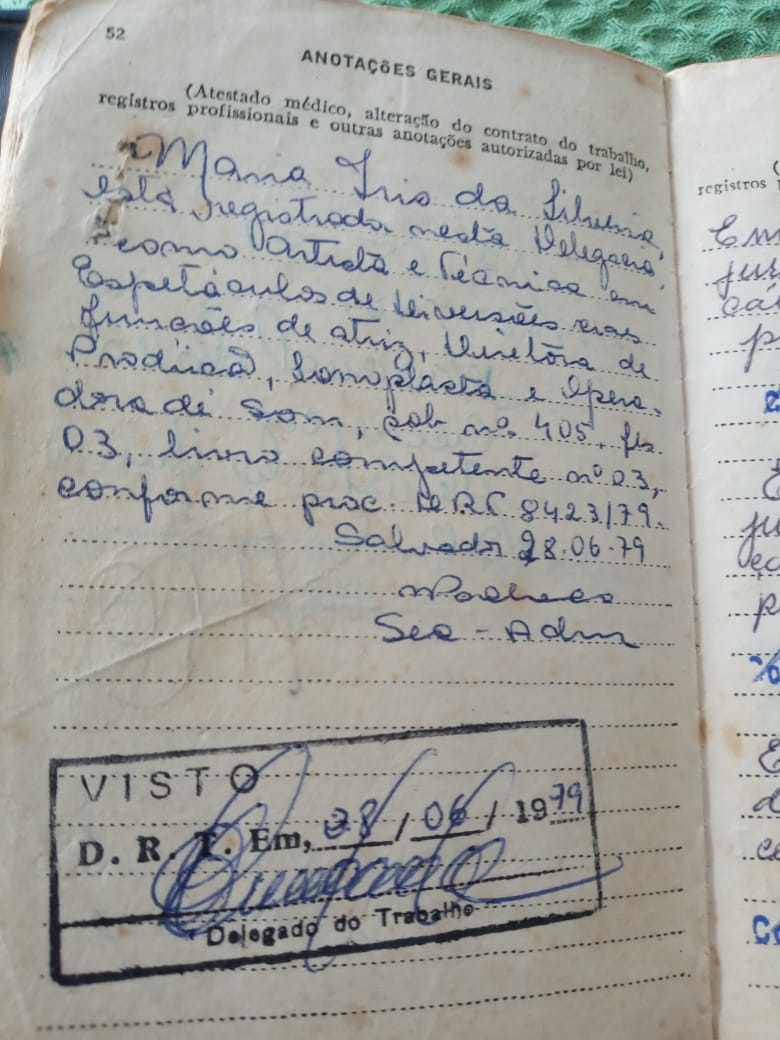 52
ANOTAÇÕES GERAIS
(Atestado médico, alteração do contrato do trabalho,
registros profissionais e outras anotações autorizadas por lei)
Maria Iris da Silveira,
está registrada nesta Delegacia
como Artista e Técnica em
Espetáculos de Diversões nas
funções de atriz, Diretora de
Produção, Sonoplasta e Opera-
dora de Som, sob nº 405, fls.
03, livro competente nº 03,
conforme proc. DRT 8423/79.
Salvador 28.06.79
Pacheco
Sec - Adm
VISTO
D. R. T. Em, 28 / 06 / 1979
Delegado do Trabalho
registros